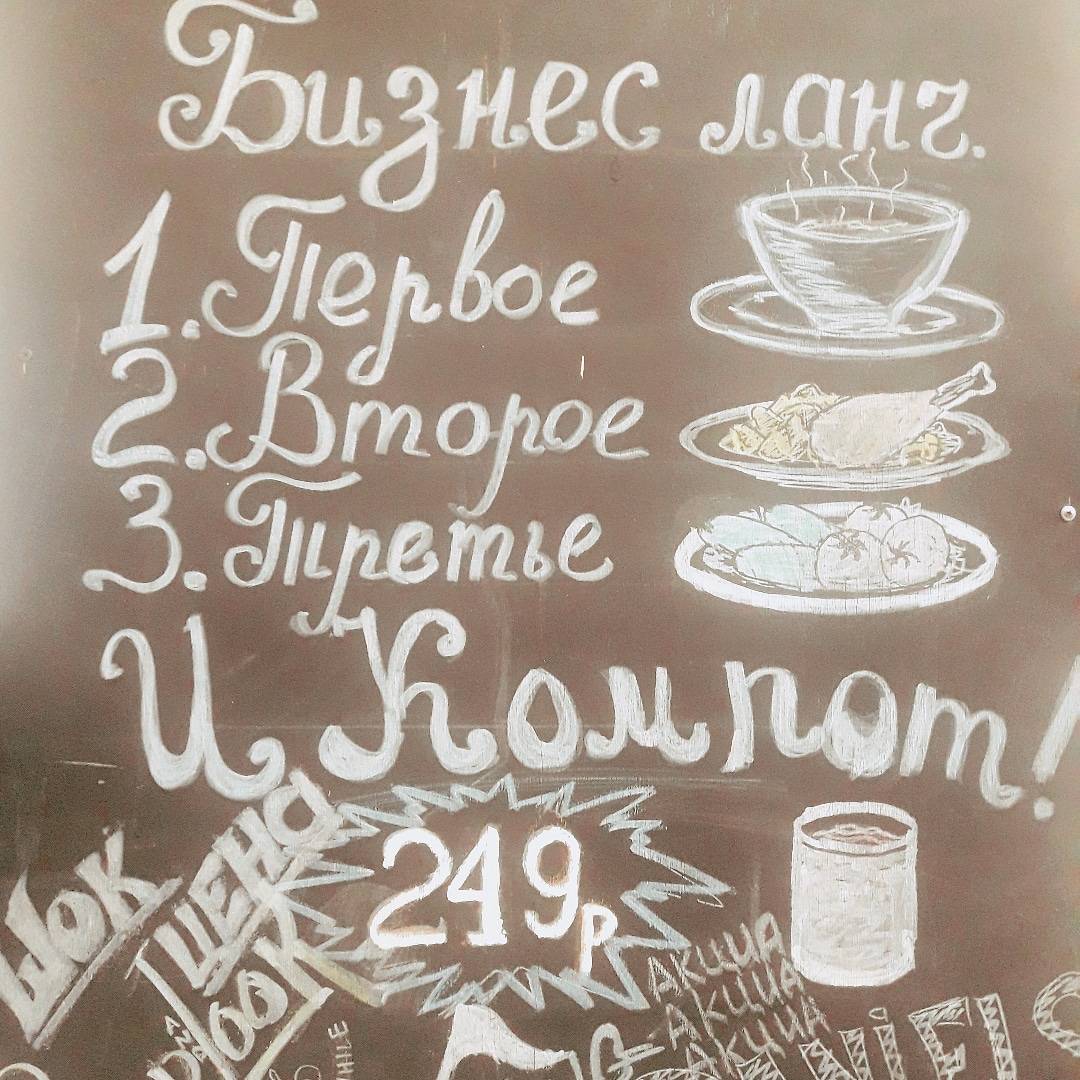 Бизнес ланч.
1. Первое
2. Второе
3. Третье
И Компот!
249р
ШОК
ЦЕНА
АКЦИЯ
АКЦИЯ
АКЦИЯ
АКЦИЯ